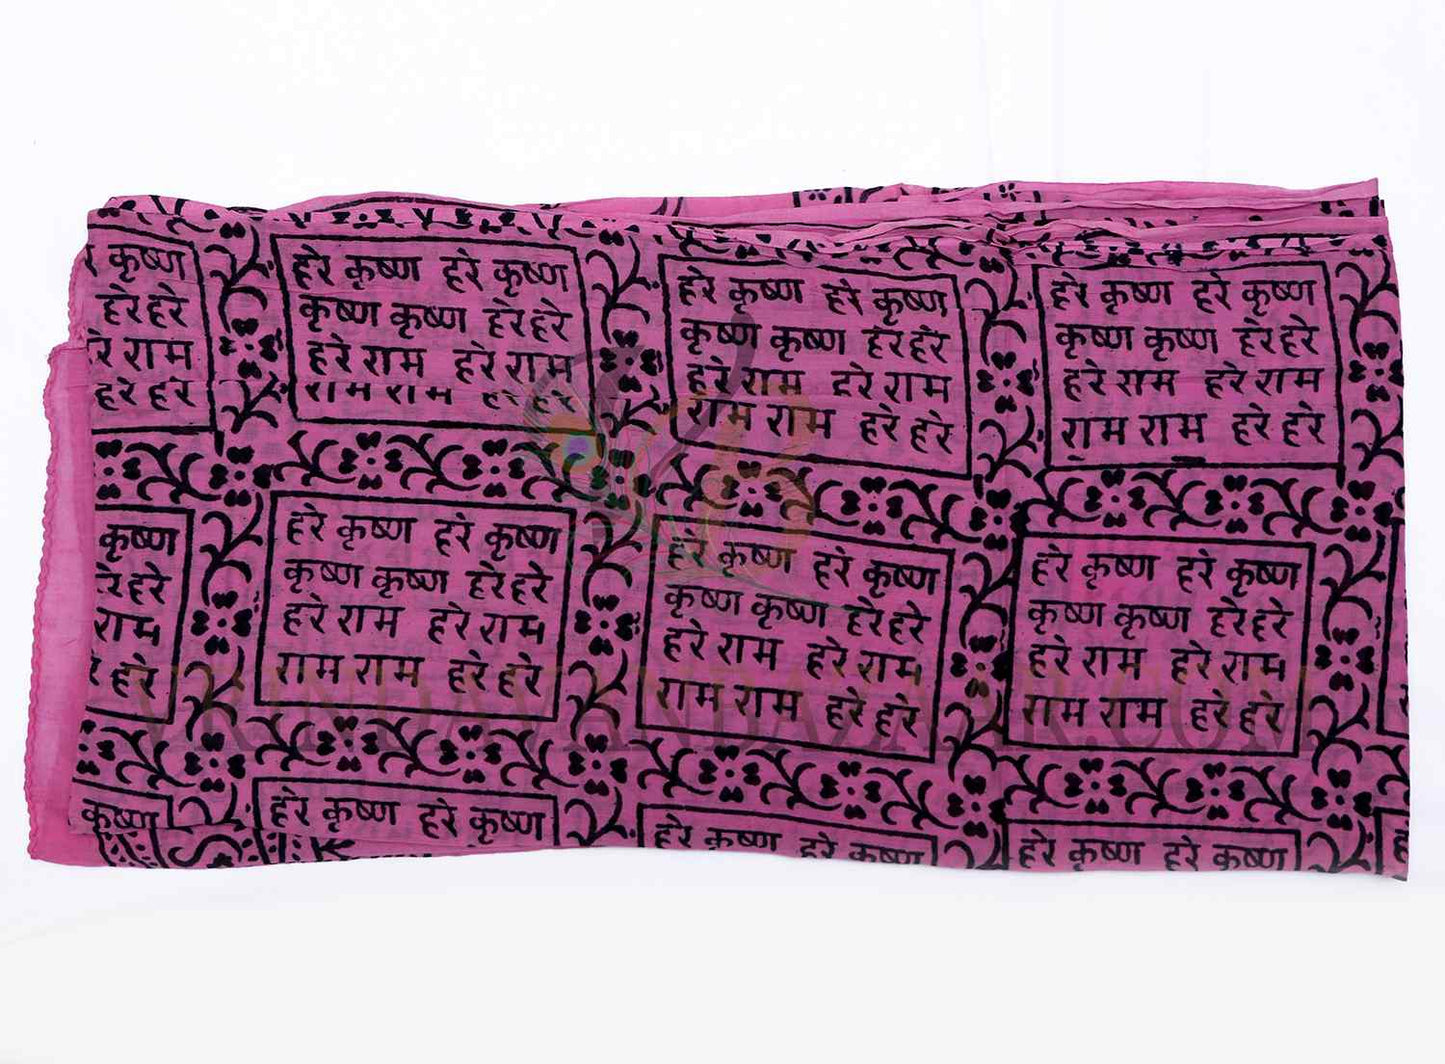 र कृष्ण
हरे हरे
हरे राम
हरे हरे
हरे कृष्ण हरे कृष्ण
कृष्ण कृष्ण हरे हरे
हरे राम हरे राम
राम राम हरे हरे
हरे कृष्ण हरे कृष्ण
कृष्ण कृष्ण हरे हरे
हरे राम हरे राम
राम राम हरे हरे
हरे कृष्ण हरे कृष्ण
कृष्ण कृष्ण हरे हरे
हरे राम हरे राम
राम राम हरे हरे
कृष्ण
हरे हरे
राम
हरे
हरे कृष्ण हरे कृष्ण
कृष्ण कृष्ण हरे हरे
हरे राम हरे राम
राम राम हरे हरे
हरे कृष्ण हरे कृष्ण
कृष्ण कृष्ण हरे हरे
हरे राम हरे राम
राम राम हरे हरे
हरे कृष्ण हरे कृष्ण
कृष्ण कृष्ण हरे हरे
हरे राम हरे राम
राम राम हरे हरे
VRINDAVANBAZAAR.COM
कृष्ण
हरे कृष्ण हरे कृष्ण
हरे कृष्ण हरे कृष्ण
हरे कृष्ण हरे कृष्ण